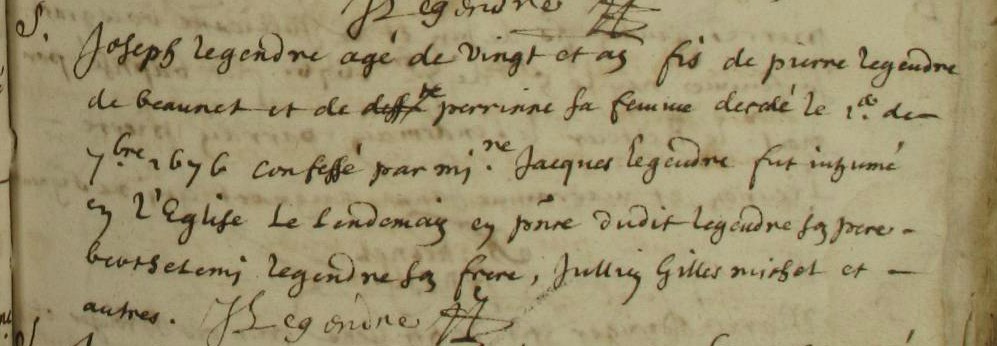 Legendre
S.
Joseph legendre agé de vingt et an fis de pierre legendre
de beaunet et de deffte perrinne sa femme decdé le 1.er de
7.bre 1676 confessé par mi.re Jacques legendre fut inhumé
en l'Eglise Le lendemain en pnre dudit legendre son pere
berthelemi legendre son frere, Jullien Gilles michel et
autres. J Legendre